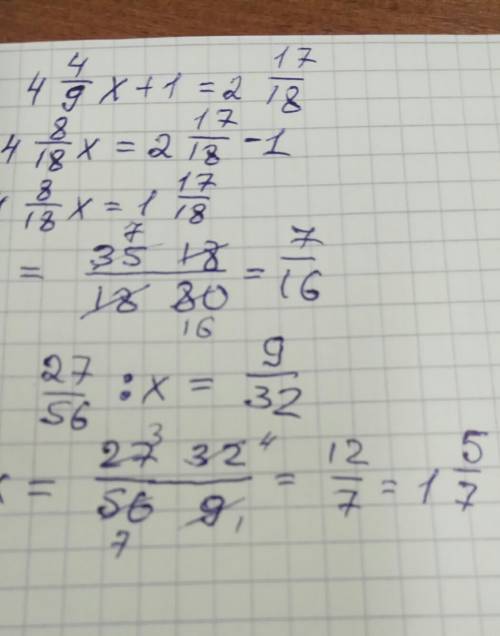 4 4/9 x + 1 = 2 17/18
4 8/18 x = 2 17/18 - 1
8/18 x = 1 17/18
= 35 7 18 / 18 80 16 = 7/16
27/56 : x = 9/32
x = 27 3 32 4 / 56 7 9 1 = 12/7 = 1 5/7